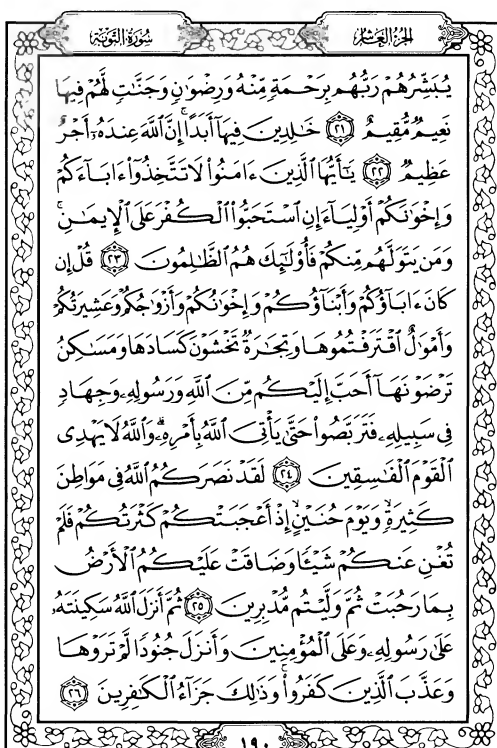 سُورَةُ التَّوْبَةِ
الجُزْءُ العَاشِرُ
يُبَشِّرُهُمْ رَبُّهُم بِرَحْمَةٍ مِّنْهُ وَرِضْوَٰنٍ وَجَنَّٰتٍ لَّهُمْ فِيهَا
نَعِيمٌ مُّقِيمٌ ٢١ خَٰلِدِينَ فِيهَآ أَبَدًا إِنَّ ٱللَّهَ عِندَهُۥٓ أَجْرٌ
عَظِيمٌ ٢٢ يَٰٓأَيُّهَا ٱلَّذِينَ ءَامَنُوا۟ لَا تَتَّخِذُوٓا۟ ءَابَآءَكُمْ
وَإِخْوَٰنَكُمْ أَوْلِيَآءَ إِنِ ٱسْتَحَبُّوا۟ ٱلْكُفْرَ عَلَى ٱلْإِيمَٰنِ ۚ
وَمَن يَتَوَلَّهُم مِّنكُمْ فَأُو۟لَٰٓئِكَ هُمُ ٱلظَّٰلِمُونَ ٢٣ قُلْ إِن
كَانَ ءَابَآؤُكُمْ وَأَبْنَآؤُكُمْ وَإِخْوَٰنُكُمْ وَأَزْوَٰجُكُمْ وَعَشِيرَتُكُمْ
وَأَمْوَٰلٌ ٱقْتَرَفْتُمُوهَا وَتِجَٰرَةٌ تَخْشَوْنَ كَسَادَهَا وَمَسَٰكِنُ
تَرْضَوْنَهَآ أَحَبَّ إِلَيْكُم مِّنَ ٱللَّهِ وَرَسُولِهِۦ وَجِهَادٍ
فِى سَبِيلِهِۦ فَتَرَبَّصُوا۟ حَتَّىٰ يَأْتِىَ ٱللَّهُ بِأَمْرِهِۦ ۗ وَٱللَّهُ لَا يَهْدِى
ٱلْقَوْمَ ٱلْفَٰسِقِينَ ٢٤ لَقَدْ نَصَرَكُمُ ٱللَّهُ فِى مَوَاطِنَ
كَثِيرَةٍ ۙ وَيَوْمَ حُنَيْنٍ ۙ إِذْ أَعْجَبَتْكُمْ كَثْرَتُكُمْ فَلَمْ
تُغْنِ عَنكُمْ شَيْـًٔا وَضَاقَتْ عَلَيْكُمُ ٱلْأَرْضُ
بِمَا رَحُبَتْ ثُمَّ وَلَّيْتُم مُّدْبِرِينَ ٢٥ ثُمَّ أَنزَلَ ٱللَّهُ سَكِينَتَهُۥ
عَلَىٰ رَسُولِهِۦ وَعَلَى ٱلْمُؤْمِنِينَ وَأَنزَلَ جُنُودًا لَّمْ تَرَوْهَا
وَعَذَّبَ ٱلَّذِينَ كَفَرُوا۟ ۚ وَذَٰلِكَ جَزَآءُ ٱلْكَٰفِرِينَ ٢٦
١٩٠